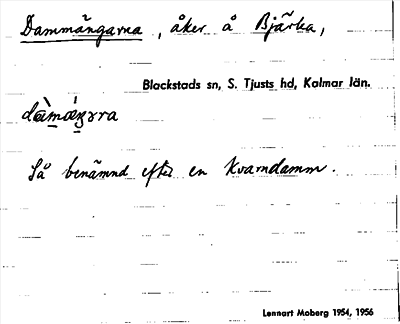 Dammängarna, åker å Bjärka,
Blackstads sn, S. Tjusts hd, Kalmar län.
Så benämnd efter en kvarndamm.
Lennart Moberg 1954, 1956